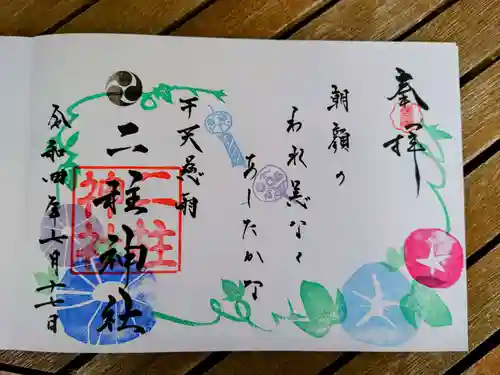 奉拝
朝顔の
われ悲なく
あしたかな
干天慈雨
二柱神社
二柱
神社
令和四年七月十七日